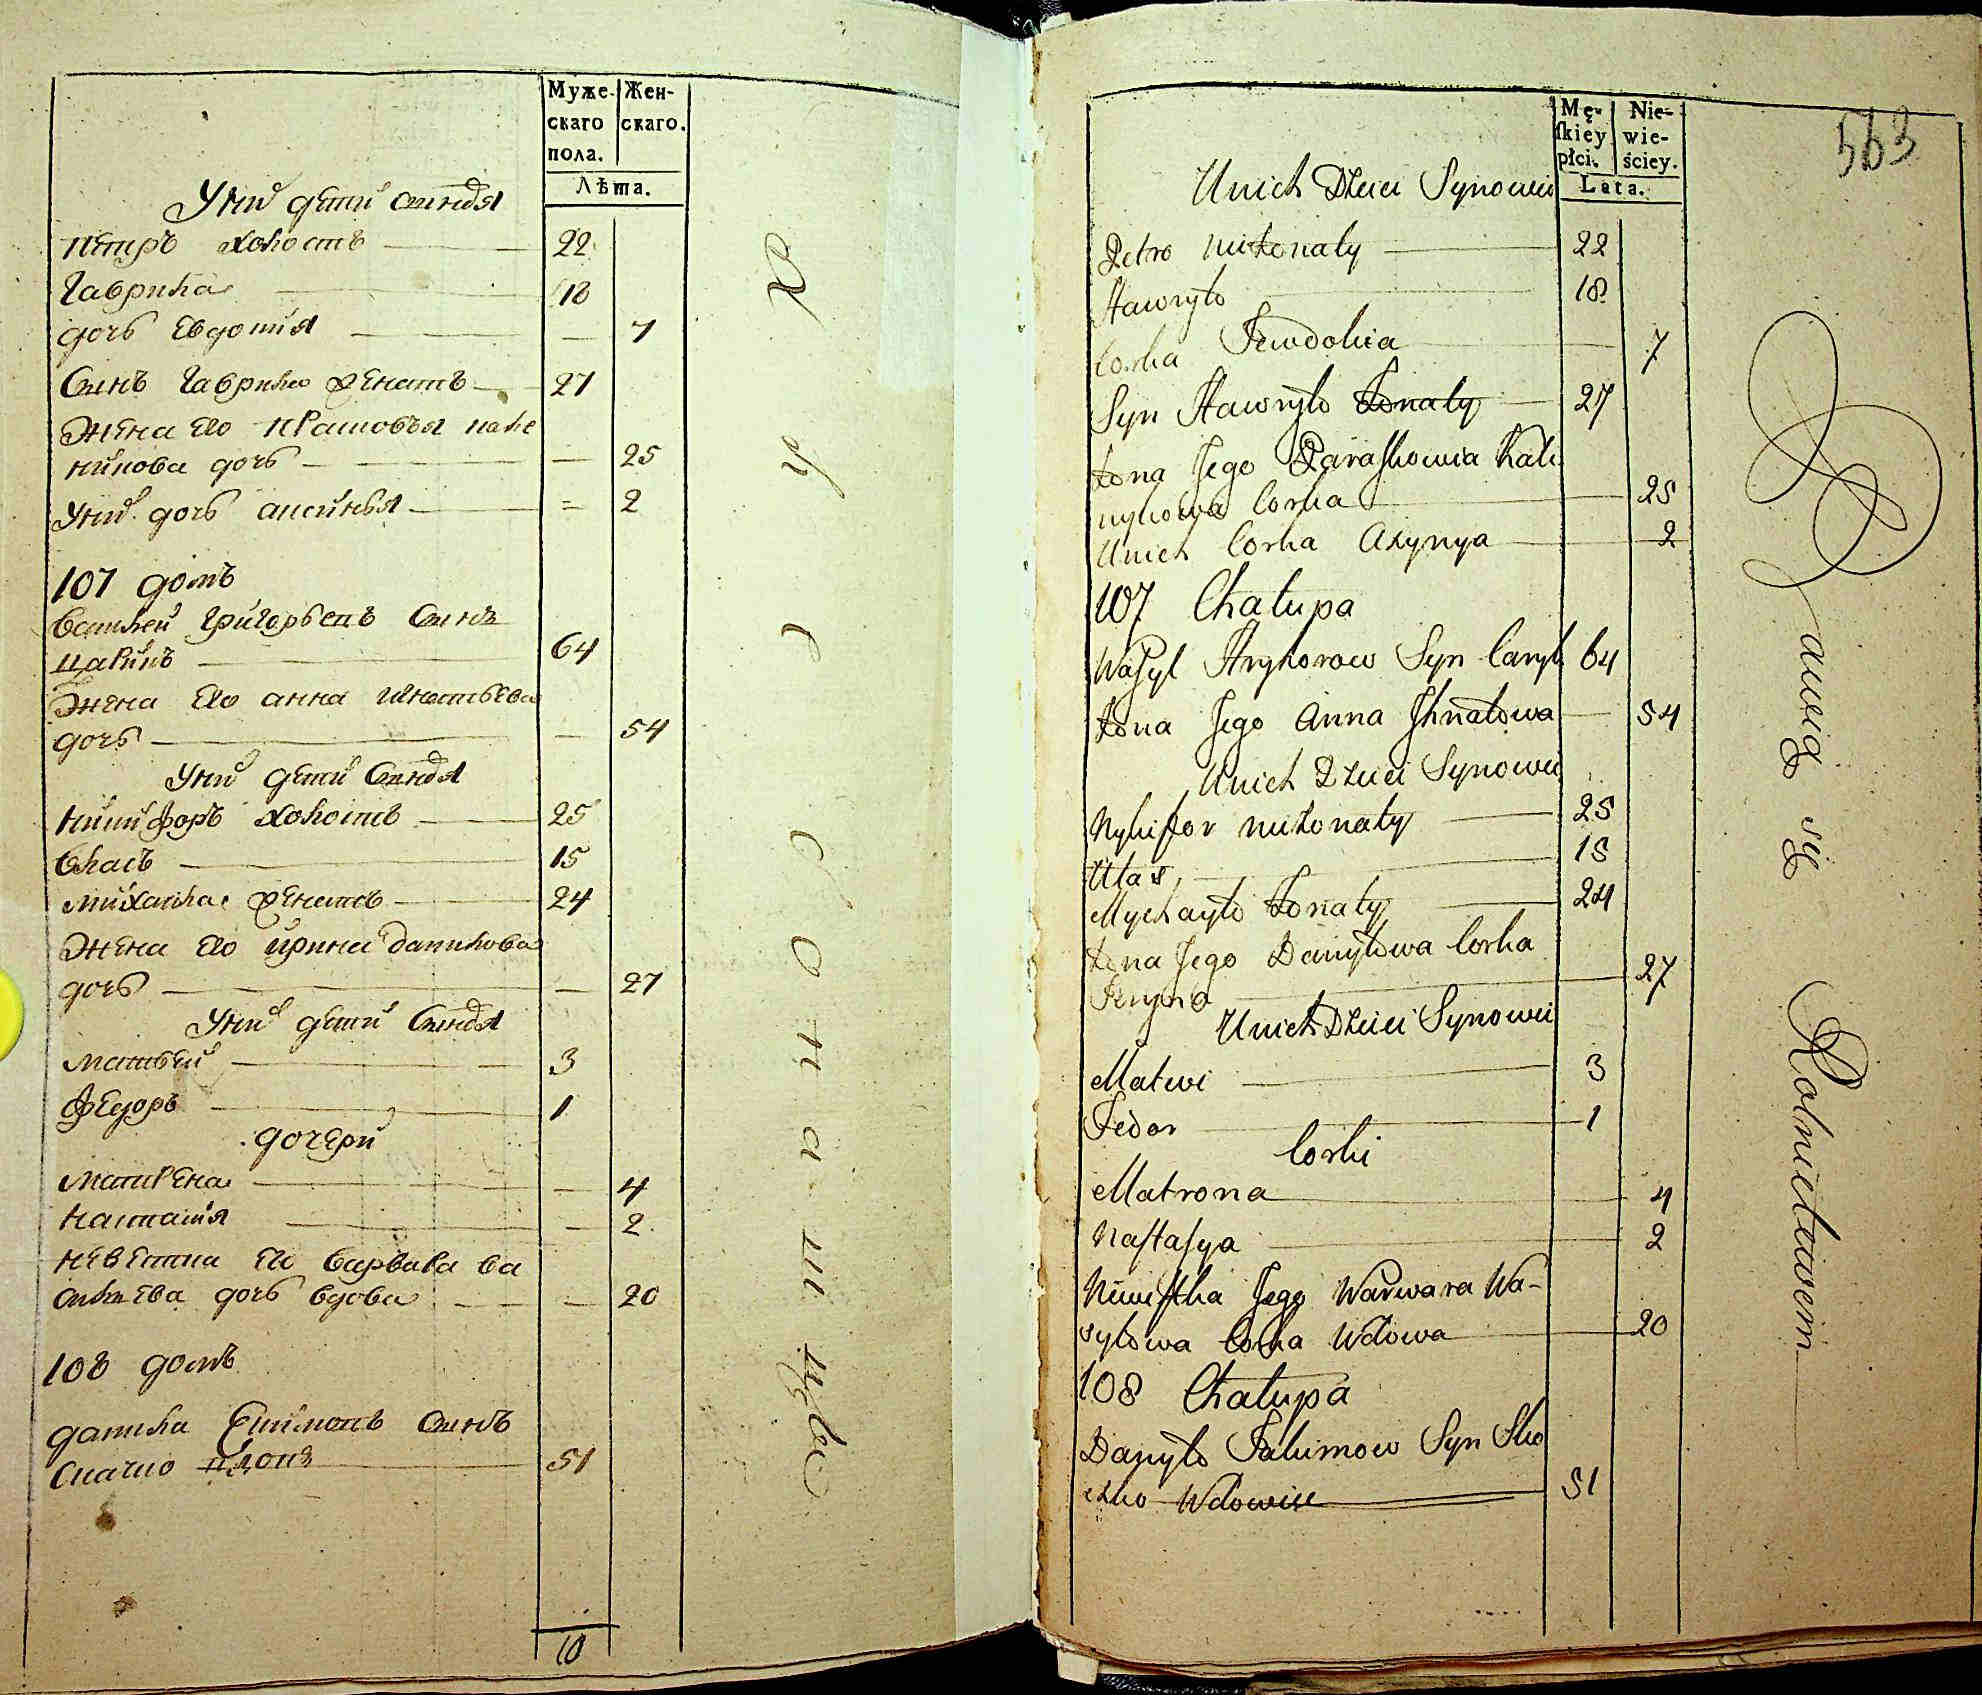 Муже-
скаго
пола.
Жен-
скаго.
Лѣта.
Унихъ дети синовя
петръ холостъ 22
Гаврила 18
дочь Евдокия 7
Синъ Гаврило женатъ 27
Жена его прасковья кали
никова дочь 25
Унихъ дочь аксинья 2
107 домъ
Василей Григорьевъ Синъ
64
Жена его анна игнатьева
дочь 54
Унихъ дети Синовя
Никифоръ холостъ 25
Власъ 15
михаила женатъ 24
Жена его ирина данилова
дочь 27
Унихъ дети Синовя
матвей 3
Федоръ 1
дочери
матрена 4
настасия 2
невестка его варвара ва
силиева дочь вдова 20
108 домъ
данила Екимовъ Синъ
Скачко вдовъ 51
10
Mę-
skiey
płci.
Nie-
wie-
ściey.
Lata.
563
Unich Dzieci Synowie
Petro niezonaty 22
Hawryło 18
Corka Jewdokia 7
Syn Hawryło Zonaty 27
Zona Jego Paraskowia Kali
nykowa Corka 25
Unich Corka Axynya 2
107 Chałupa
Wasyl Hryhorow Syn Caryk 64
Zona Jego Anna Ihnatowa 54
Unich Dzieci Synowie
Nykifor niezonaty 25
Ułas 15
Mychayło Zonaty 24
Zona Jego Danyłowa Corka
Jeryna 27
Unich Dzieci Synowie
Matwi 3
Fedor 1
Corki
Matrona 4
Nastasya 2
Niewistka Jego Warwara Wa-
syłowa Corka Wdowa 20
108 Chałupa
Danyło Jakimow Syn Ska
czko Wdowiec 51
Bawią się Rolnictwem